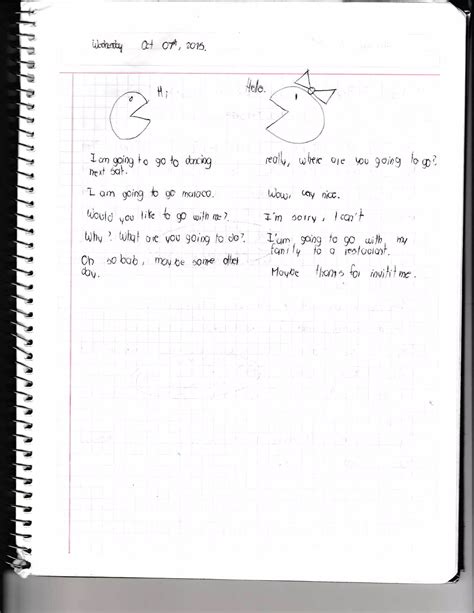 Wednesday Oct 07th, 2015.
Hi Hello.
I am going to go to dancing
next sat.
really, where are you going to go?
I am going to go maloco.
Wow, very nice.
Would you like to go with me?
I'm sorry, I can't
Why? What are you going to do?
I'am going to go with my
family to a restaulant.
Oh so bab, maybe some other
day.
Maybe thanks for invitit me.